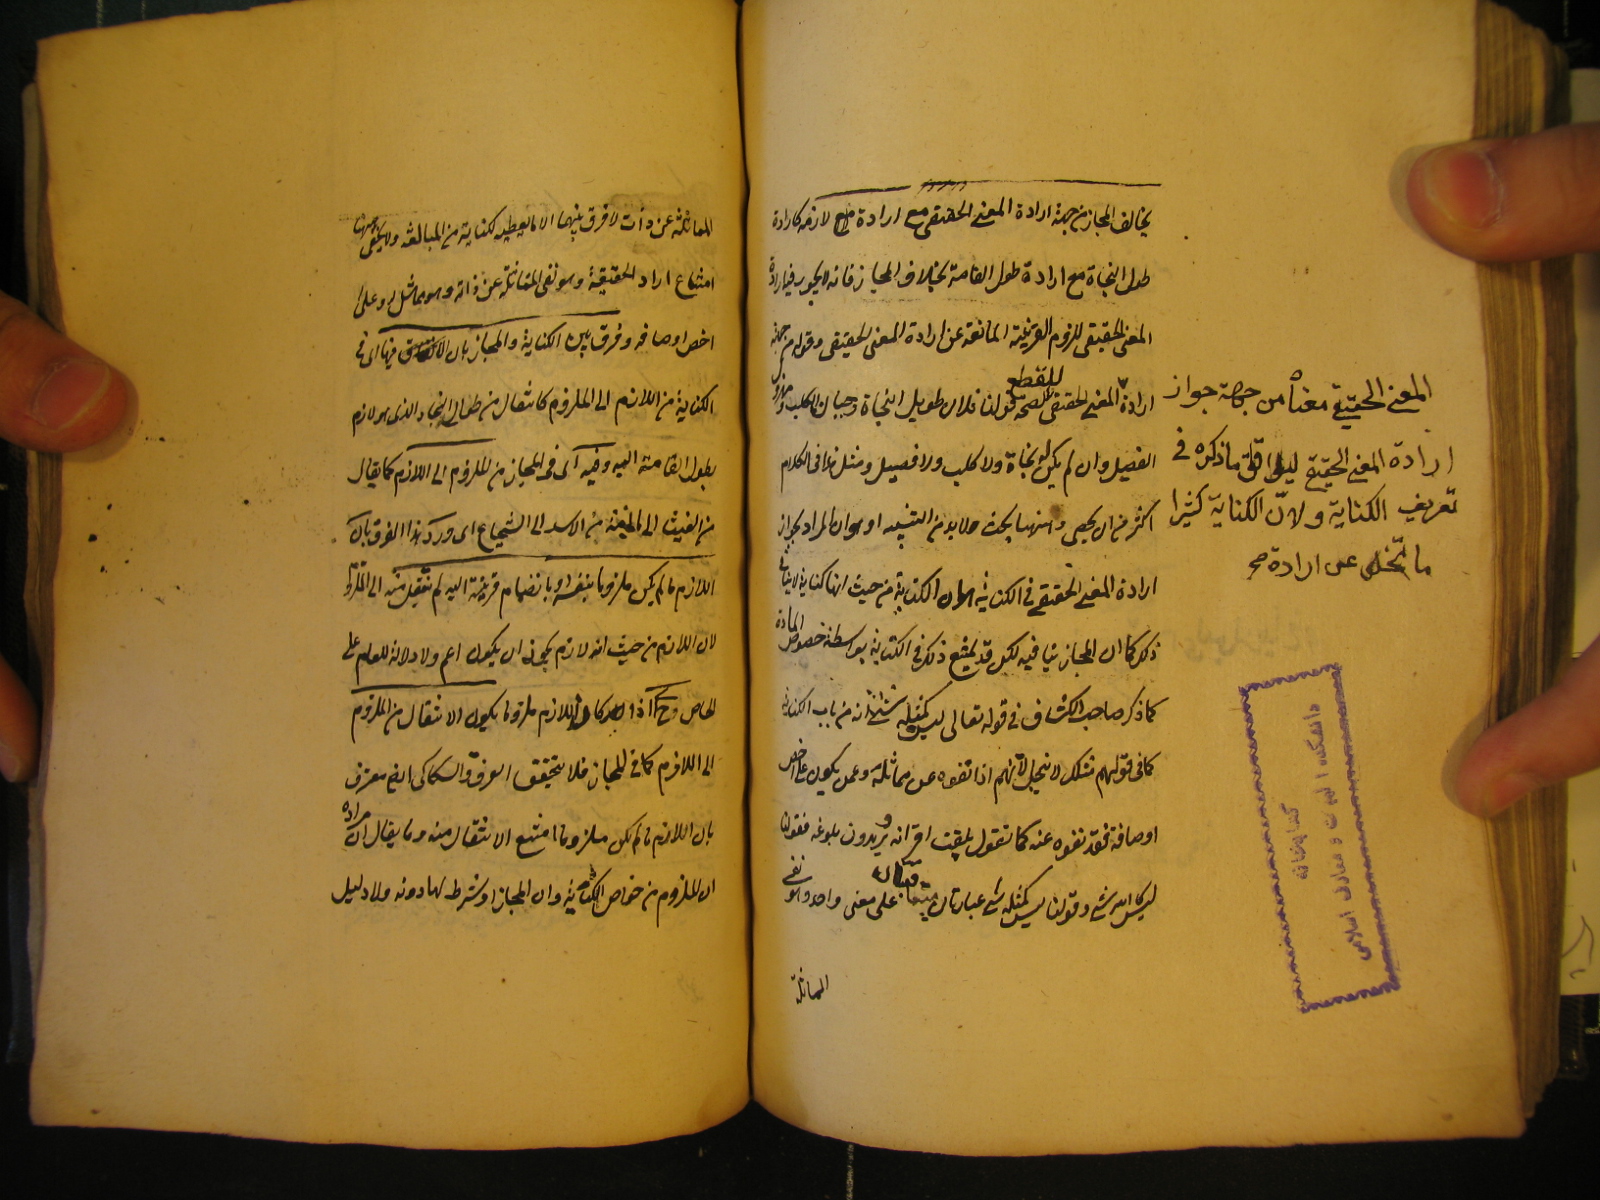 يخالف المجاز من جهة ارادة المعنى الحقيقى مع ارادة لازمه كارادة
طول النجاة مع ارادة طول القامة بخلاف المجاز فانه لا يجوز فيه ارادة
المعنى الحقيقى للزوم القرينة المانعة عن ارادة المعنى الحقيقى وقوله من جهة
ارادة المعنى الحقيقى للقطع بصحة قولنا فلان طويل النجاة وجبان الكلب ومهزول
الفصيل وان لم يكن له نجاة ولا كلب ولا فصيل ومثل هذا فى الكلام
اكثر من ان يحصى وههنا بحث ولا بد من التنبيه له وهو ان المراد بجواز
ارادة المعنى الحقيقى فى الكناية هو ان الكناية من حيث انها كناية لا ينافى
ذلك كما ان المجاز ينافيه لكن قد يمتنع ذلك فى الكناية بواسطة خصوص المادة
كما ذكر صاحب الكشاف فى قوله تعالى ليس كمثله شئ انه من باب الكناية
كما فى قولهم مثلك لا يبخل لانهم اذا نفوه عن مماثله وعمن يكون على اخص
اوصافه فقد نفوه عنه كما تقول بلغت اترابه يريدون بلوغه فقولنا
ليس كالله شئ وقولنا ليس كمثله شئ عبارتان متعاقبتان على معنى واحد وهو نفى
المماثلة
المعنى الحقيقى معناه من جهة جواز
ارادة المعنى الحقيقى ليوافق ما ذكره فى
تعريف الكناية ولان الكناية كثيرا
ما تخلو عن ارادة صح
كتابخانه
دانشكده الهيات و معارف اسلامى
المماثلة عن ذاته لا فرق بينهما الا ما يعطيه الكناية من المبالغة ولا يخفى ههنا
امتناع ارادة الحقيقة وهو نفى المماثلة عن ذاته وهو مماثل له وعلى
اخص اوصافه وفرق بين الكناية والمجاز بان الانتقال فيها اى فى
الكناية من اللازم الى الملزوم كانتقال من طول النجاد الذى هو لازم
بطول القامة اليه وفيه اى فى المجاز من الملزوم الى اللازم كما يقال
من الغيث الى النبت ومن الاسد الى الشجاع اى ورد هذا الفرق بان
اللازم ما لم يكن ملزوما بنفسه او بانضمام قرينة اليه لم ينتقل منه الى الملزوم
لان اللازم من حيث انه لازم يجوز ان يكون اعم ولا دلالة للعام على
الخاص وح اى اذا كان اللازم ملزوما يكون الانتقال من الملزوم
الى اللازم كما فى المجاز فلا يتحقق الفرق والسكاكى ايضا معترف
بان اللازم ما لم يكن ملزوما امتنع الانتقال منه وما يقال ان مراده
ان اللزوم من خواص الكناية دون المجاز او شرط لها دونه ولا دليل